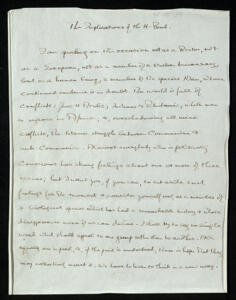 The Implications of the H-Bomb.
I am speaking on this occasion not as a Briton, not
as a European, not as a member of a western democracy,
but as a human being, a member of the species Man, whose
continued existence is in doubt. The world is full of
conflicts: Jews & Arabs; Indians & Pakistanis; white men
& negroes in Africa; &, overshadowing all minor
conflicts, the titanic struggle between Communism &
anti-Communism. Almost everybody who is politically
conscious has strong feelings about one or more of these
issues; but I want you, if you can, to set aside such
feelings for the moment & consider yourself only as a member of
a biological species which has had a remarkable history & whose
disappearance none of us can desire. I shall try to say no single
word that should appeal to one group rather than to another. All,
equally, are in peril, &, if the peril is understood, there is hope that they
may collectively avert it. We have to learn to think in a new way.